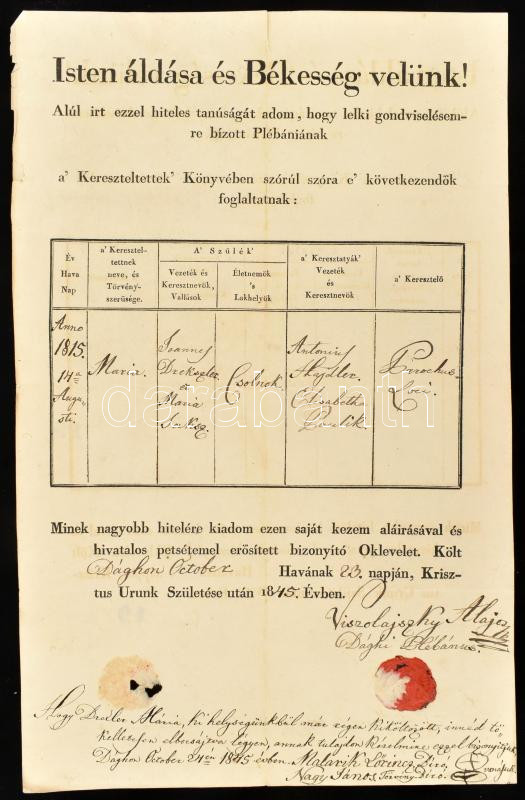 Isten áldása és Békesség velünk!
Alúl irt ezzel hiteles tanúságát adom, hogy lelki gondviselésem-
re bízott Plébániának
a' Kereszteltettek' Könyvében szórúl szóra e' következendők
foglaltatnak:
Év
Hava
Nap
a' Keresztel-
tettnek
neve, és
Törvény-
szerűsége.
A' Szülék'
Vezeték és
Keresztnevök,
Vallások
Életnemök
's
Lakhelyök
a' Keresztatyák'
Vezeték
és
Keresztnevök
a' Keresztelő
Anno
1815.
14a
Augu-
sti.
Maria.
Joannes
Drexler
et
Maria
Csolnok.
Antonius
Elisabetha
Parochus
Loci.
darabanth.com
Minek nagyobb hitelére kiadom ezen saját kezem aláirásával és
hivatalos petsétemel erösitett bizonyító Oklevelet. Költ
Dághon October Havának 23. napján, Krisz-
tus Urunk Születése után 1845. Évben.
Viszolajszky Alajos
Dághi Plébánus.
Hogy Drexler Mária, ki helységünkbül már régen kiköltözött, innéd tö-
kelletesen elbocsájtva légyen, annak tulajdon kérelmére ezzel bizonyítjuk
Dághon October 24én 1845 évben. Matarik Lőrincz Biró,
Nagy János, Törvény Biró.